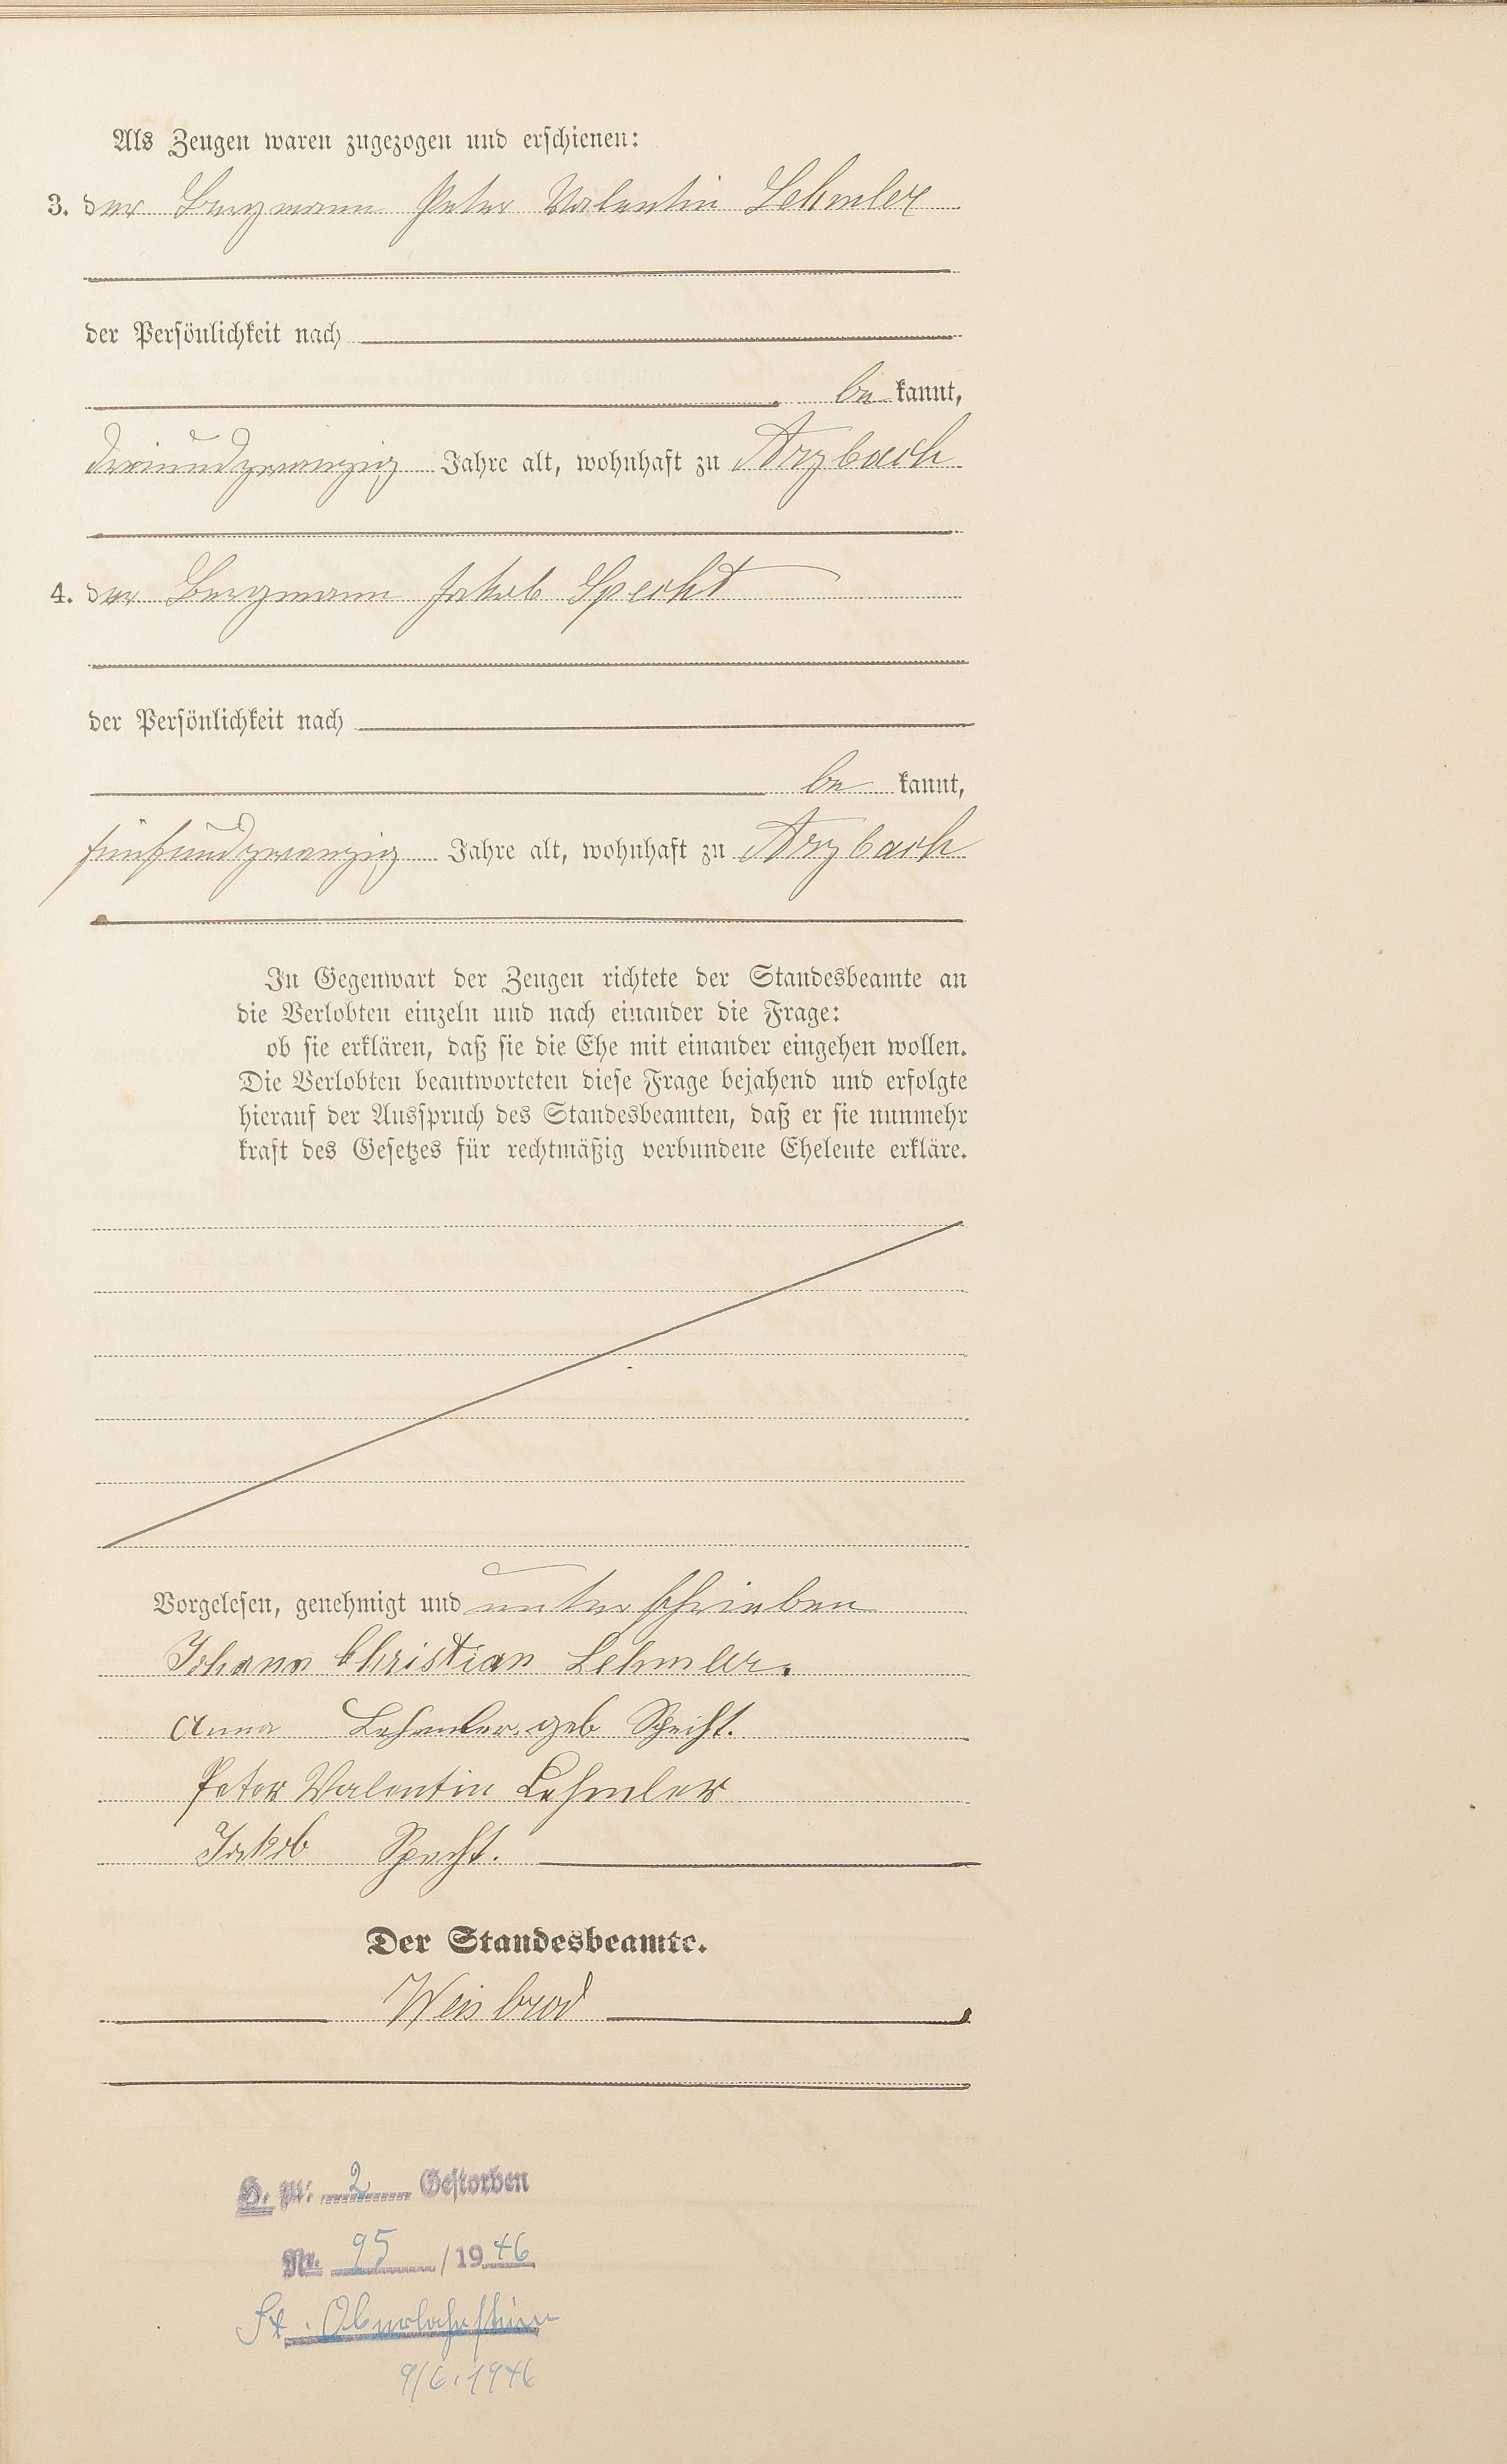 Als Zeugen waren zugezogen und erschienen:
3. der Bergmann Peter Valentin Lehmler
der Persönlichkeit nach
be kannt,
dreiundzwanzig Jahre alt, wohnhaft zu Arzbach
4. der Bergmann Jakob Specht
der Persönlichkeit nach
be kannt,
fünfundzwanzig Jahre alt, wohnhaft zu Arzbach
In Gegenwart der Zeugen richtete der Standesbeamte an
die Verlobten einzeln und nach einander die Frage:
ob sie erklären, daß sie die Ehe mit einander eingehen wollen.
Die Verlobten beantworteten diese Frage bejahend und erfolgte
hierauf der Ausspruch des Standesbeamten, daß er sie nunmehr
kraft des Gesetzes für rechtmäßig verbundene Eheleute erkläre.
Vorgelesen, genehmigt und unterschrieben
Johann Christian Lehmler.
Anna Lehmler geb Specht.
Peter Valentin Lehmler
Jakob Specht.
Der Standesbeamte.
Weisbrod
2 Gestorben
Nr. 95 / 1946
St. Oberlahnstein
9/6.1946